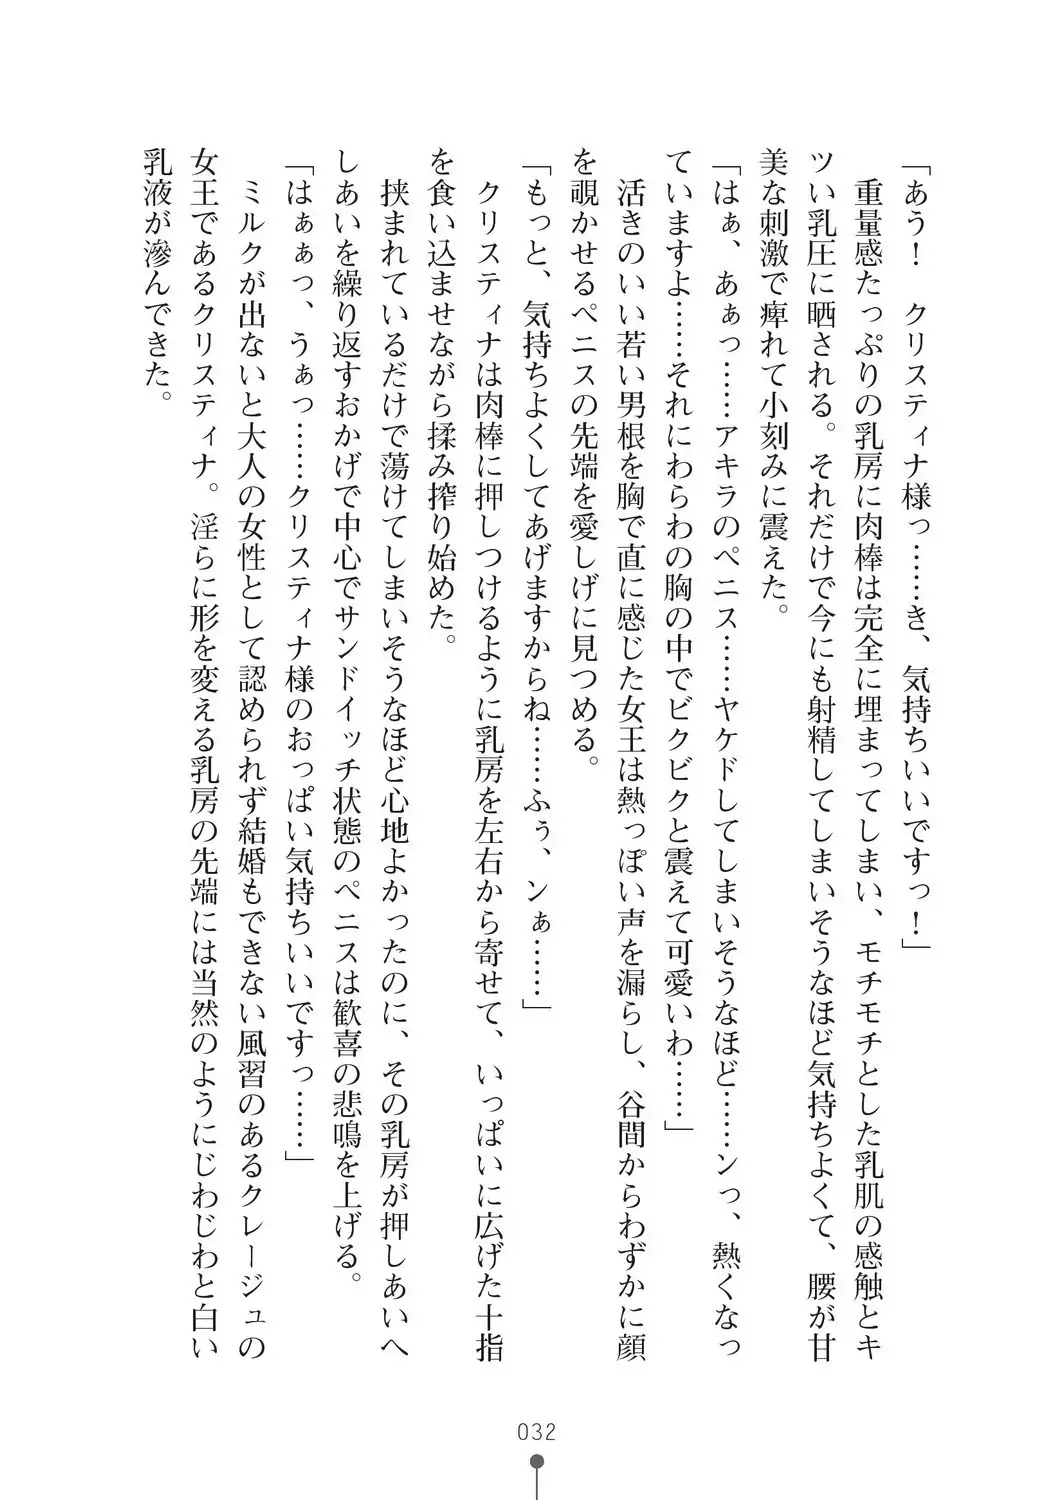 「あう！　クリスティナ様っ……き、気持ちいいですっ！」
　重量感たっぷりの乳房に肉棒は完全に埋まってしまい、モチモチとした乳肌の感触とキ
ツい乳圧に晒される。それだけで今にも射精してしまいそうなほど気持ちよくて、腰が甘
美な刺激で痺れて小刻みに震えた。
「はぁ、あぁっ……アキラのペニス……ヤケドしてしまいそうなほど……ンっ、熱くなっ
ていますよ……それにわらわの胸の中でビクビクと震えて可愛いわ……」
　活きのいい若い男根を胸で直に感じた女王は熱っぽい声を漏らし、谷間からわずかに顔
を覗かせるペニスの先端を愛しげに見つめる。
「もっと、気持ちよくしてあげますからね……ふぅ、ンぁ……」
　クリスティナは肉棒に押しつけるように乳房を左右から寄せて、いっぱいに広げた十指
を食い込ませながら揉み搾り始めた。
　挟まれているだけで蕩けてしまいそうなほど心地よかったのに、その乳房が押しあいへ
しあいを繰り返すおかげで中心でサンドイッチ状態のペニスは歓喜の悲鳴を上げる。
「はぁぁっ、うぁっ……クリスティナ様のおっぱい気持ちいいですっ……」
　ミルクが出ないと大人の女性として認められず結婚もできない風習のあるクレージュの
女王であるクリスティナ。淫らに形を変える乳房の先端には当然のようにじわじわと白い
乳液が滲んできた。
032